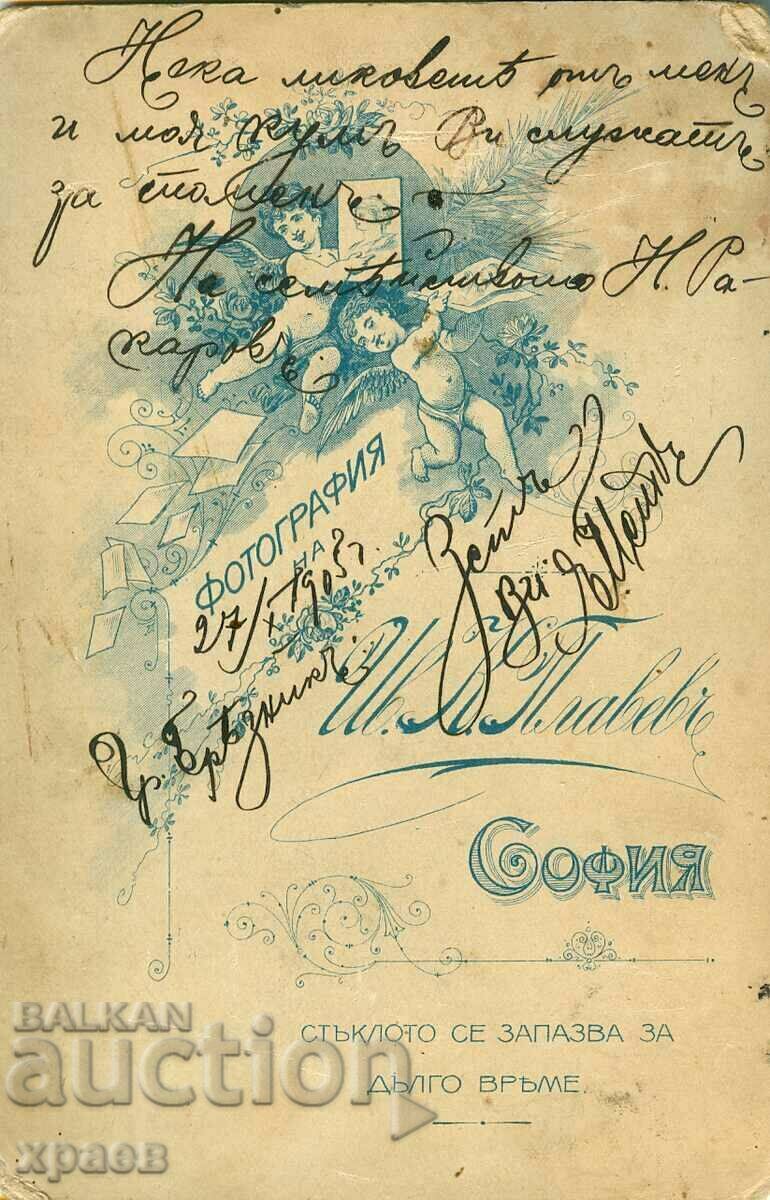 Нека ликоветѣ отъ менъ
и моя кумъ Ви служатъ
за споменъ.
На семѣйството Н. Ра-
каровъ
ФОТОГРАФИЯ
НА
27/X 1903 г.
Гр. Брѣзникъ.
Ив. А. Плавевъ
СОФИЯ
СТЪКЛОТО СЕ ЗАПАЗВА ЗА
ДЪЛГО ВРѢМЕ.
BALKAN
auction
храев